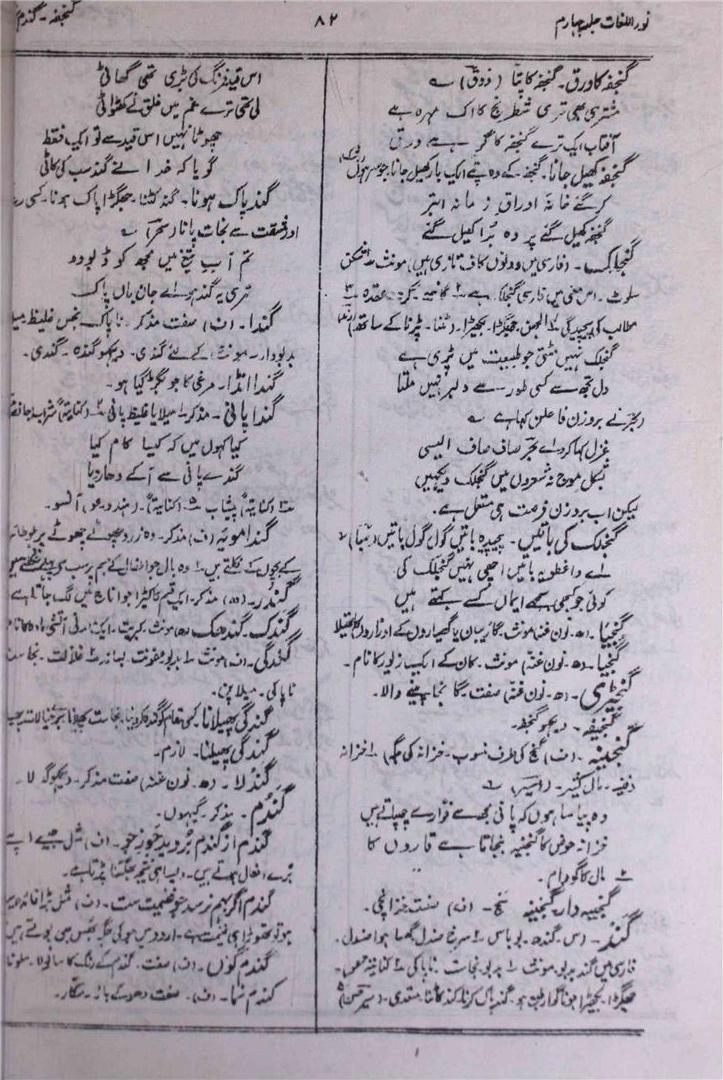 نور اللغات جلد چہارم
۸۲
گنجفہ - گندم
گنجفہ کا ورق - گنجفہ کا پتّا (ذوقؔ) ؎
مشتری بھی تری شطرنج کا اک مہرہ ہے
آفتاب ایک ترے گنجفہ کا گر ہے ورق
گنجفہ کھیل جانا - گنجفہ کے دہ پتے ایک بار کھیل جانا جو
کر گئے خانۂ اوراق زمانہ ابتر
گنجفہ کھیل گئے پر وہ بُرا کھیل گئے
گنجلک - (فارسی میں دونوں کاف تازی ہیں) مونث
سلوٹ - اس معنی میں فارسی گنجلک ہے
مطالب کی پیچیدگی الجھن جھگڑا - بکھیڑا - (مٹنا - پڑنا کے ساتھ)
گنجلک نہیں مٹتی جو طبیعت میں پڑی ہے
دل تجھ سے کسی طور سے دلبر نہیں ملتا
بحرؔ نے بروزن فاعلن کہا ہے ؎
غزل کہا کر اے بحرؔ صاف صاف ایسی
بشکل موج نہ شعروں میں گنجلک دیکھیں
لیکن اب بروزن فرصت ہی مستعمل ہے.
گنجلک کی باتیں - پیچیدہ باتیں گول گول باتیں
اے واعظو یہ باتیں اچھی نہیں گنجلک کی
کوئی جو کبھی سمجھے ایمان کسے کہتے ہیں
گنجیا - (ھ - نون غنہ) مونث - گھسیاروں کے اوزاروں کا تھیلا
گنجیا - (ھ - نون غنہ) مونث - کان کے ایک زیور کا نام -
گنجیڑی - (ھ - نون غنہ) صفت - گانجا پینے والا -
گنجیفہ - دیکھو گنجفہ -
گنجینہ - (ف) گنج کی طرف منسوب - خزانہ کی جگہ) ۱- خزانہ
دفینہ - مال کثیر - (اسیرؔ) ؎
وہ پیاسا ہوں کہ پانی مجھ سے فوّارے چھپاتے ہیں
خزانہ حوض کا گنجینہ بنجاتا ہے قاروں کا
۲ مال کا گودام -
گنجینہ دار - گنجینہ سنج - (ف) صفت - خزانچی -
گند - (س - گندھ - بو باس سرخ صندل گھسا ہوا صندل -
فارسی میں گند بد بو مونث ۱ بد بو نجاست - ناپاکی
جھگڑا - بکھیڑا ہونا گوارا نہ ہو - گند پاک کرنا گند کاٹنا متعدی - (میر حسنؔ)
اس قید فرنگ کی بڑی تھی گھاٹی
لی تھی ترے غم میں خلق نے
چھوٹا نہیں اس قید سے تو ایک فقط
گویا کہ خدا نے گند سب کی کاٹی
گند پاک ہونا - گند کٹنا - جھگڑا پاک ہونا - کسی
اور مشقت سے نجات پانا (سحرؔ) ؎
تم آب تیغ میں مجھ کو ڈبو دو
تری یہ گند ہو اے جان جاں پاک
گندا - (ف) صفت مذکر - ناپاک نجس غلیظ
بدبودار - مونث کے لئے گندی - دیکھو گندہ - گندی -
گندا انڈا - مرغی کا جو بگڑ گیا ہو -
گندا پانی - مذکر - میلا یا غلیظ پانی (کنایۃً) شراب
کیا کہوں میں کہ کیسا کام کیا
گندے پانی سے آکے دھار دیا
(کنایۃً) پیشاب (کنایۃً) (ہندو - عو) آنسو -
گندا مویہ (ف) مذکر - وہ زرد چھوٹے چھوٹے پر
کے بچوں کے نکلتے ہیں - وہ بال جو اطفال کے جسم پر سب سے پہلے نکلتے ہیں
گندر - (ھ) مذکر - ایک قسم کا کیڑا جو اناج میں لگ جاتا ہے
گندک - گندھک - (ھ) مونث - کبریت - ایک آتشی مادہ کا نام
گندگی - (ف) مونث ۱ بدبو عفونت - بساند ۲ غلاظت - نجاست
ناپاکی - میلا پن -
گندگی پھیلانا - کسی مقام کو گندہ کر دینا - نجاست پھیلانا
گندگی پھیلنا - لازم -
گندلا - (ھ - نون غنہ) صفت مذکر - دیکھو گدلا -
گندم - مذکر - گیہوں -
گندم از گندم بروید جو ز جو - (ف) مثل - جیسے
بُرے افعال ہوتے ہیں - ویسا ہی نتیجہ بھگتنا پڑتا ہے -
گندم اگر بہم نرسد جو غنیمت ست - (ف) مثل بڑا فائدہ
ہو تو تھوڑا ہی غنیمت ہے - اردو میں جو کی جگہ بھُس بھی بولتے ہیں
گندم گوں - (ف) صفت - گندم کے رنگ کا سانولا - سلونا
گندم نما - (ف) - صفت دھوکے باز - مکار -